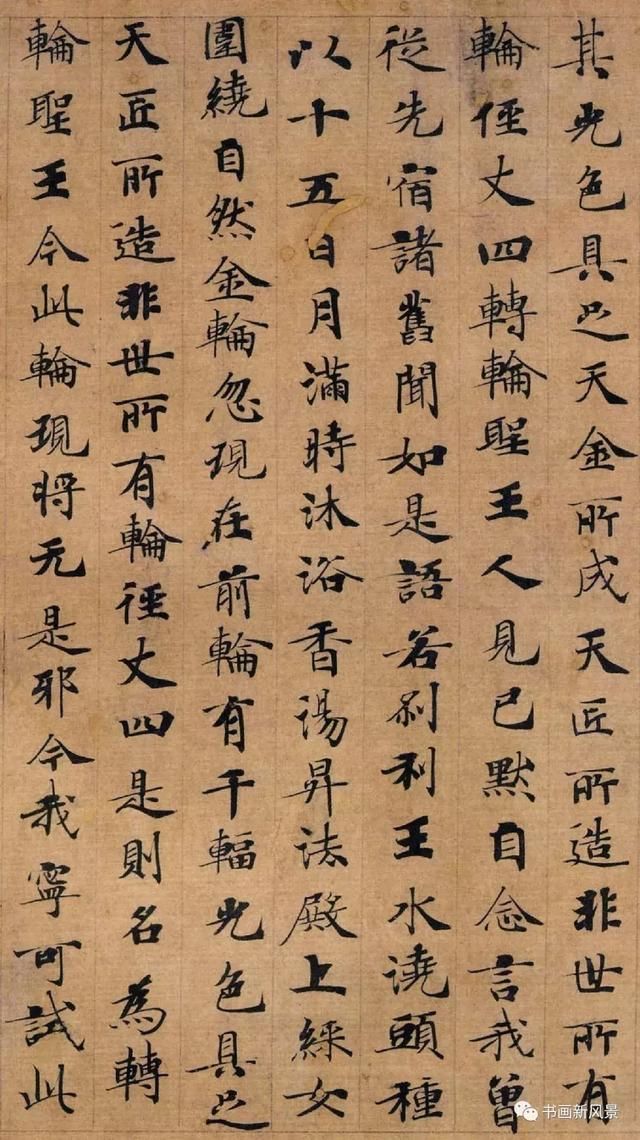 其光色具足天金所成天匠所造非世所有
輪徑丈四轉輪聖王人見已默自念言我曾
從先宿諸舊聞如是語若刹利王水澆頭種
以十五日月滿時沐浴香湯昇法殿上綵女
圍繞自然金輪忽現在前輪有千輻光色具足
天匠所造非世所有輪徑丈四是則名為轉
輪聖王今此輪現將无是邪今我寧可試此
书画新风景